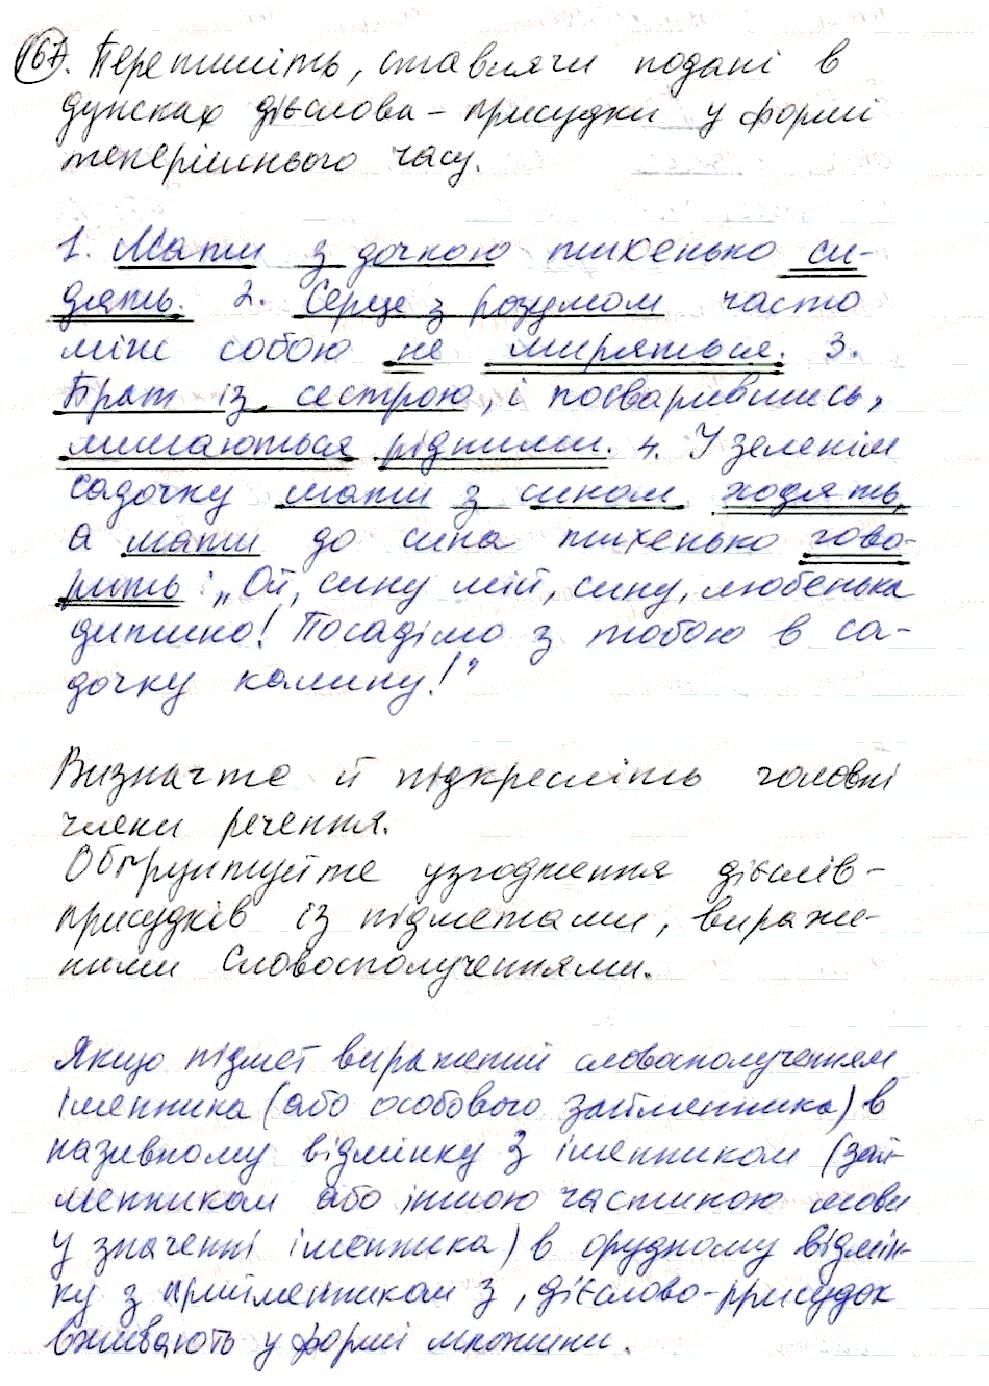 167. Перепишіть, ставлячи подані в
дужках дієслова-присудки у формі
теперішнього часу.
1. Мати з дочкою тихенько си-
дять. 2. Серце з розумом часто
між собою не миряться. 3.
Брат із сестрою, і посварившись,
лишаються рідними. 4. У зеленім
садочку мати з сином ходять,
а мати до сина тихенько гово-
рить: „Ой, сину мій, сину, любенька
дитино! Посадімо з тобою в са-
дочку калину!"
Визначте й підкресліть головні
члени речення.
Обґрунтуйте узгодження дієслів-
присудків із підметами, выраже-
ними словосполученнями.
Якщо підмет виражений словосполученням
іменника (або особового займенника) в
називному відмінку з іменником (зай-
менником або іншою частиною мови
у значенні іменника) в орудному відмін-
ку з прийменником з, дієслово-присудок
вживають у формі множини.